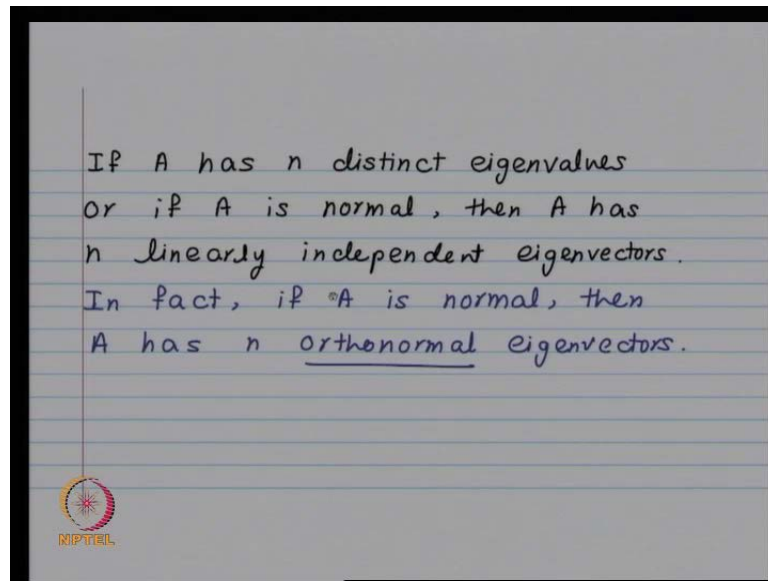 If A has n distinct eigenvalues
or if A is normal, then A has
n linearly independent eigenvectors.
In fact, if A is normal, then
A has n orthonormal eigenvectors.
NPTEL